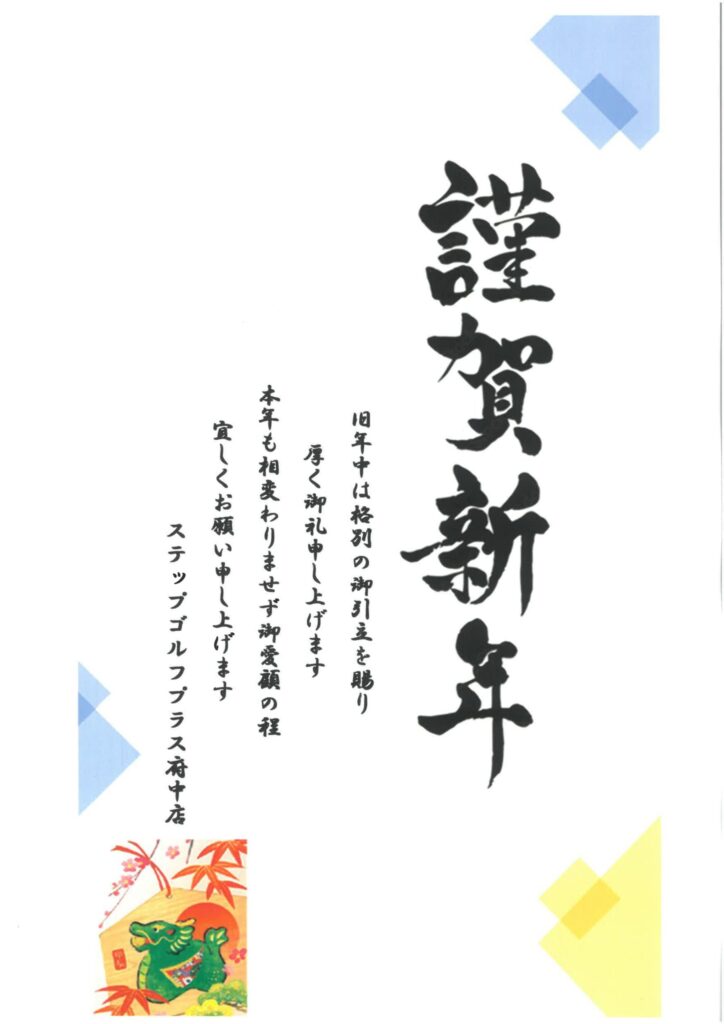 謹賀新年
旧年中は格別の御引立を賜り
厚く御礼申し上げます
本年も相変わりませず御愛顧の程
宜しくお願い申し上げます
ステップゴルフプラス府中店